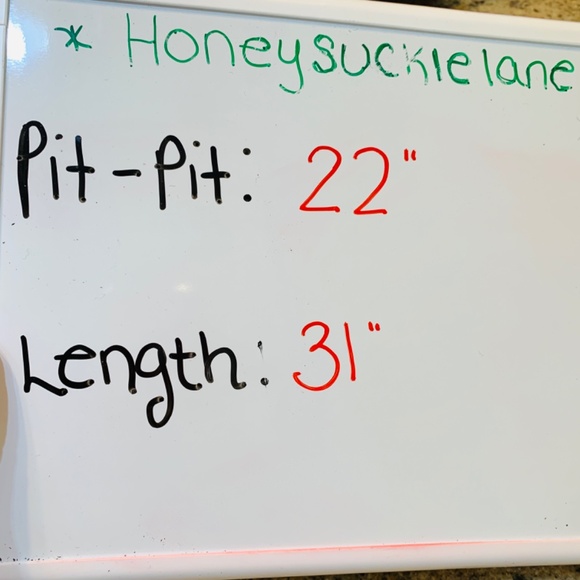 * Honeysucklelane
Pit-Pit: 22"
Length: 31"